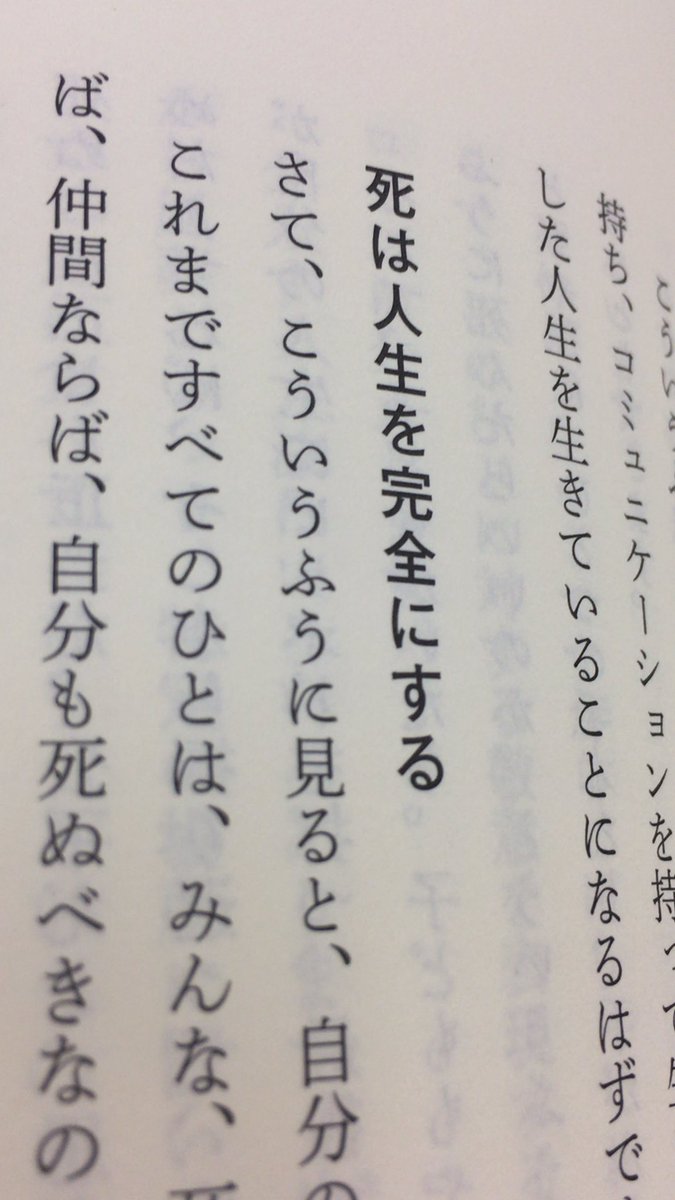 こうい
持ち、コミュニケーションを持って生
した人生を生きていることになるはずで
死は人生を完全にする
さて、こういうふうに見ると、自分の
これまですべてのひとは、みんな、死
ば、仲間ならば、自分も死ぬべきなの